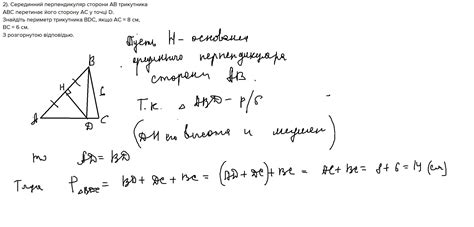 2). Серединний перпендикуляр сторони AB трикутника
ABC перетинає його сторону AC у точці D.
Знайдіть периметр трикутника BDC, якщо AC = 8 см,
BC = 6 см.
З розгорнутою відповіддю.
Пусть H - основания
срединного перпендикуляра
стороны AB.
Т.к. △ ABD - р/б
(DH его высота и медиан)
B
H
6
A
D
C
то AD = BD
Тогда P△BDC = BD + DC + BC = (AD + DC) + BC = AC + BC = 8 + 6 = 14 (см)